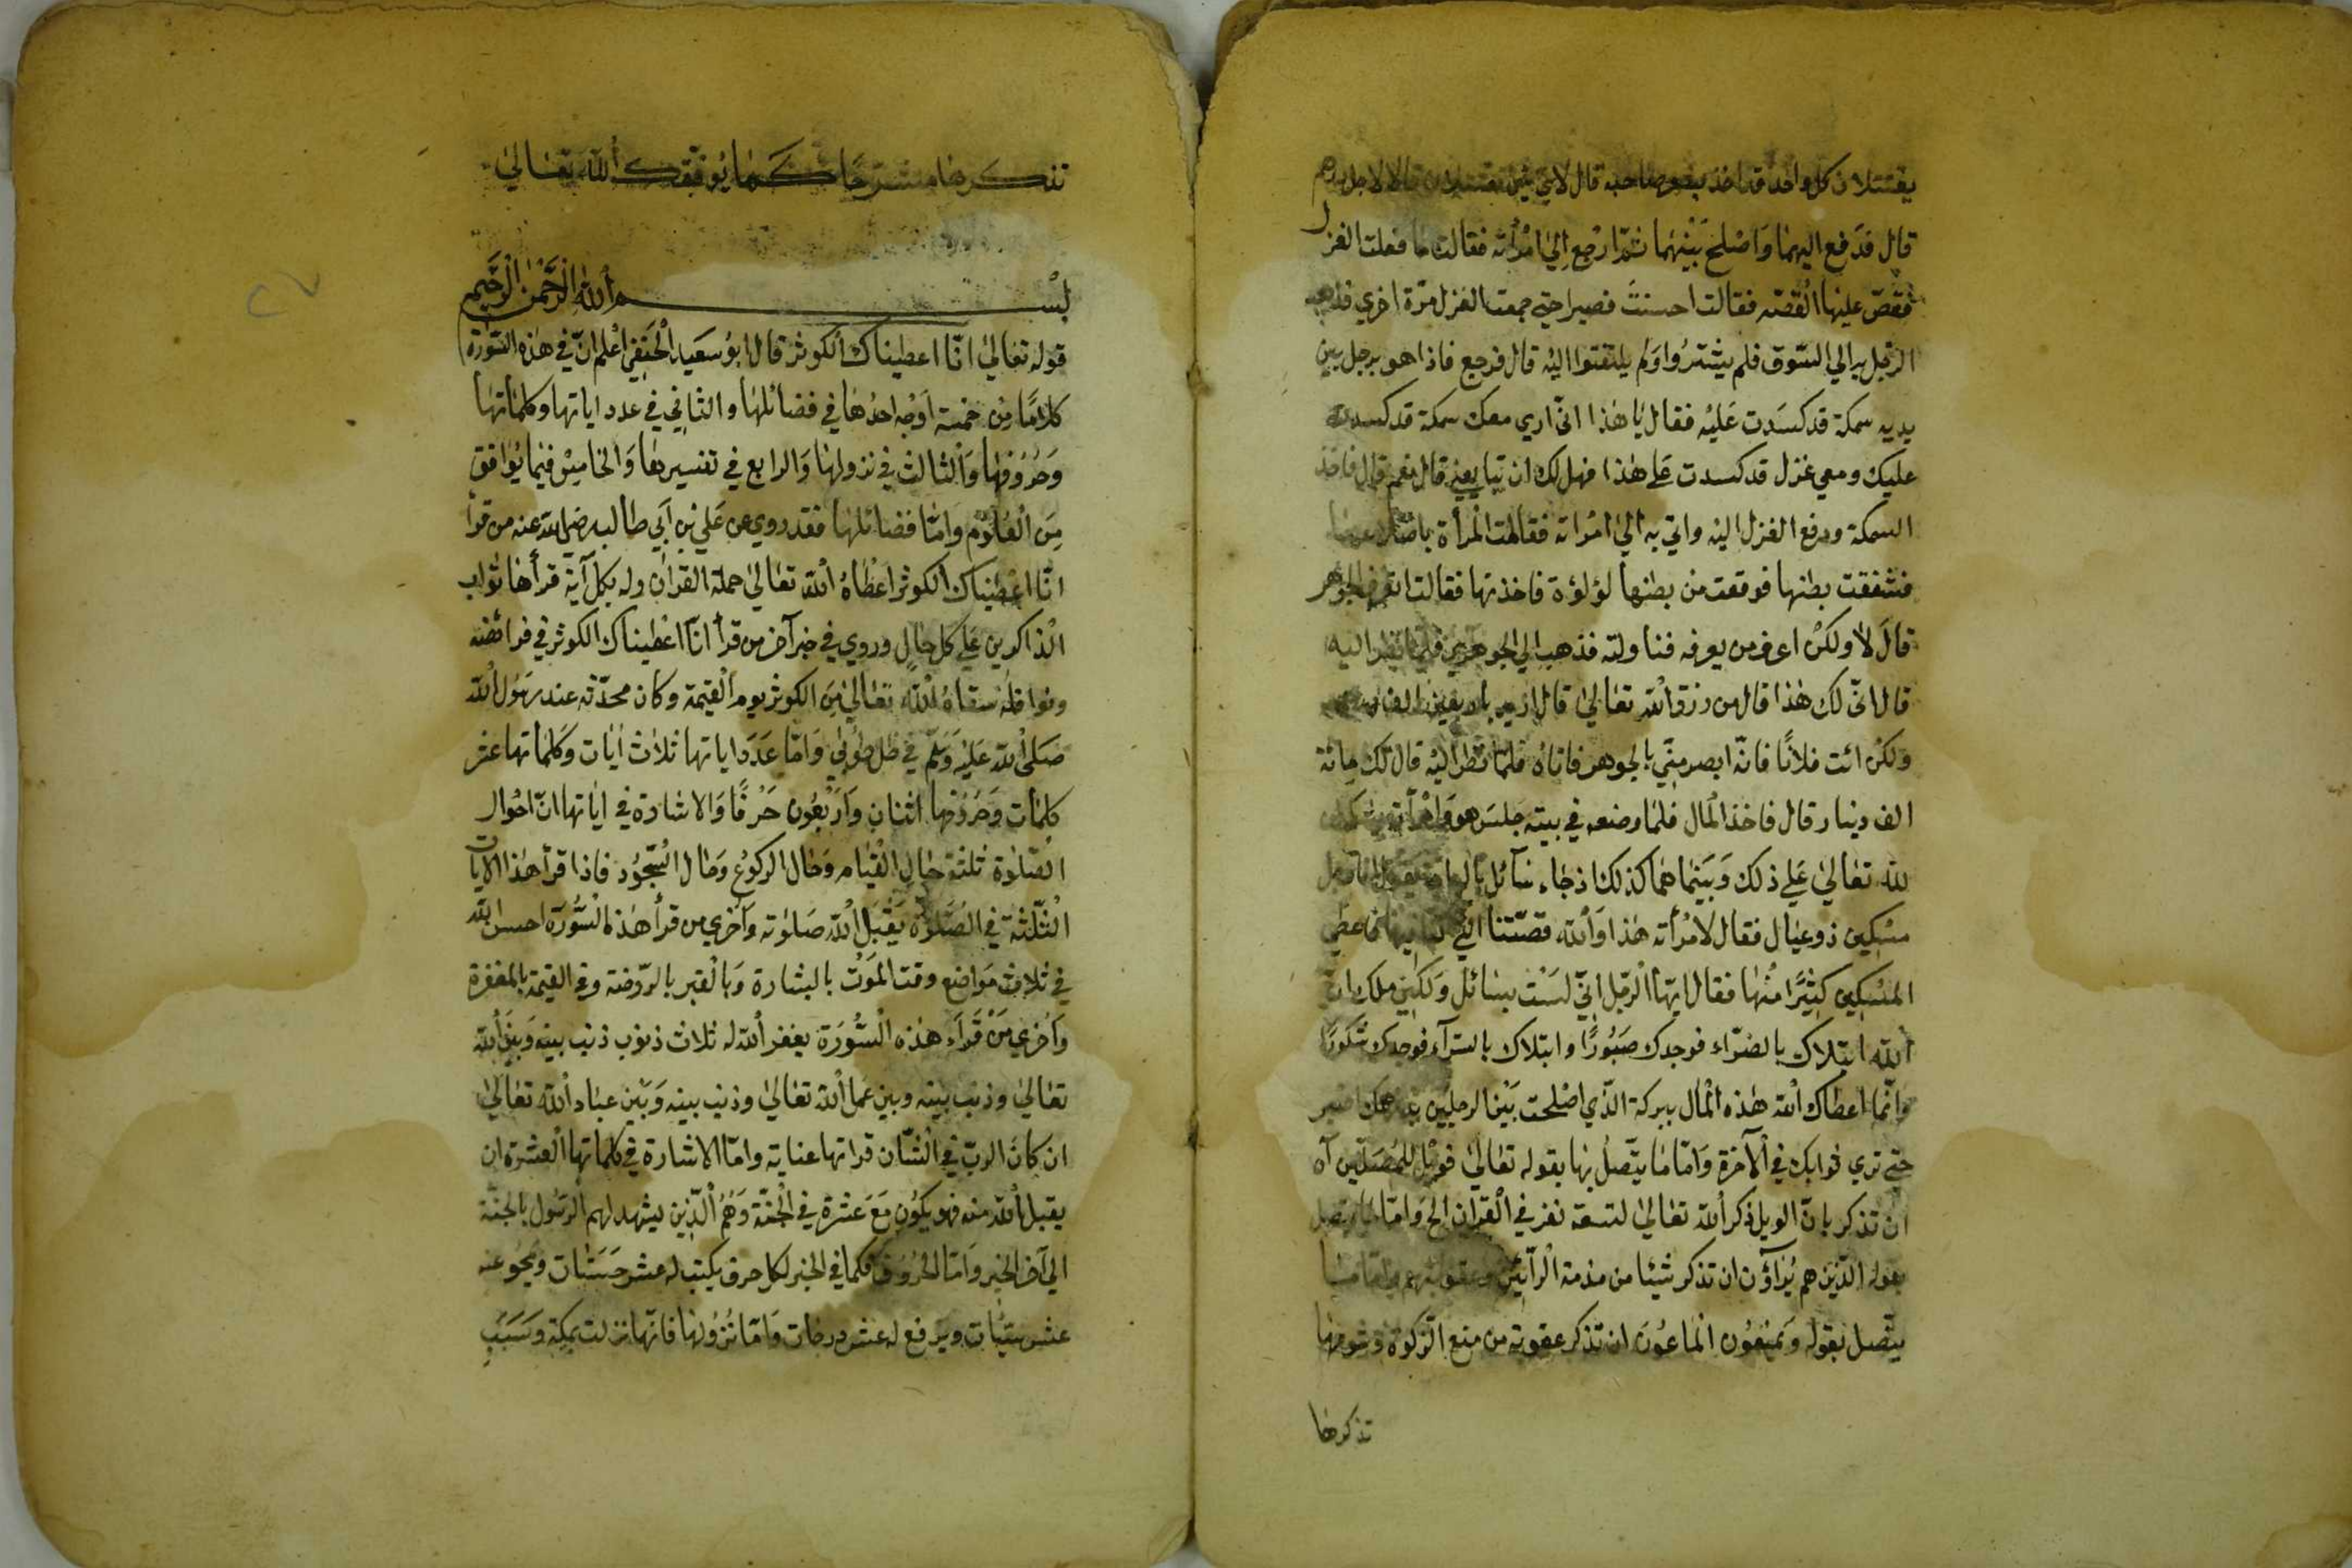 يقتتلان كل واحد قد اخذ صاحبه قال لاي شئ تقتتلان قالا لاجل درهم
قال فدفع اليهما وَاصْلح بَيْنهُما ثمّ ارجع اِليٰ امْرأته فقالت ما فعلت الغزل
فقصّ علَيهَا القصّه فقالت احسنت فصبرا حتي جمعت الغزل مرّة اخري فذهب
الرّجل به الي السّوق فلم يشترُوا وَلم يلتفتوا اليْه قال فرجع فاذا هو برجل بين
يديه سمكة قد كسَدت عَليْه فقال يَا هٰذا انّي اري معك سمكة قد كسدت
عليك ومعي غزل قد كسدت عَلي هٰذا فهل لك ان تبايعني قال نعم قال فاخذ
السمكة ودفع الغزل اليْه واتي به اليٰ امْراته فقالت المرأة
فشققت بطنها فوقعت من بطنها لؤلؤة فاخذتها فقالت اتعرف الجوْهر
قالَ لا ولكنْ اعرف من يعرفه فناولته فذهب الي الجوهري فلما نظر اليه
قال انّي لك هٰذا قال من رزق الله تعَاليٰ قال
وَلكنْ ائت فلانًا فانّه ابصر منّي بالجوهر فاتاهُ فلمّا نظر اليْه قال لك مائة
الف دينار قال فاخذ المال فلمّا وضعه في بيته جلسَ هو وَامْرأته يشكران
لله تعَاليٰ عَلي ذلك وَبَيْنما هُما كذلك اذ جَاء سَآئل بالباب فيقول انا رجل
مسْكين ذو عيَال فقال لامْرأته هٰذا وَالله قصّتنا التي كنا فيها فاعطي
المسْكين كثيرًا منْهَا فقال ايّها الرّجل انّي لسْت بسَائل وَلكنّي ملك انّ
الله ابتلاك بالضرّاء فوجدك صَبُورًا وابتلاك بالسرّآء فوجدك شكورًا
وَانّما اعطاك الله هٰذه الْمال ببركة الّذي اصْلحت بَيْن الرجليْن بدرهمك اصبر
حتي تري ثوابك في الآخرة وَامّا مَا يتّصلُ بهَا بقوله تعَاليٰ فويْل للمُصَلّين آه
ان تذكر بانّ الويل ذكر الله تعَاليٰ لتسعة نفر في القرْان الخ وَامّا ما يتصل
بقوله الّذين هم يُرَاؤن ان تذكر شيئا من مذمة الْرآئين وعقوبتهم وامّا ما
يتّصل بقوله وَيمْنعُون الْماعُونَ ان تذكر عقوبة من منع الزّكوة وشومها
تذكرها
تذكرها مشرحًا كما يُوفّقك الله تعَاليٰ
بسْم اللهِ الرَّحْمٰنِ الرَّحيم
قوله تعَاليٰ انّا اعطيناك الكوثر قال ابوُ سعَيد الْحَنفي اعْلم انّ في هٰذه السّوُرة
كلامًا مِن خمسة اَوْجُه احدُهَا في فضائلهَا والثاني في عدد اياتها وكلماتهَا
وَحُرُوفهَا وَالثالث في نزولهَا وَالرابع في تفسيرهَا وَالخامِسْ فيمَا يُوَافق
مِنَ الْعُلوُم وامّا فضائلهَا فقد روي عن عَلي بْنِ اَبي طالب رضي الله عنه من قرأ
انّا اعْطيناك الكوثر اعْطاهُ الله تعَاليٰ حملة القرْان وله بكلّ آية قرأهَا ثوَاب
الذاكرين عَلي كلّ حَالٍ وروي في خبر آخر من قرأ انّا اعْطيناك الكوثر في فرائضه
ونوافله سقاهُ الله تعَاليٰ مِنَ الكوثر يوم الْقيٰمة وكان محدّثه عند رسُول الله
صَلي الله عَليْه وَسَلّم في ظلّ طُوبٰي وَامّا عَدَد اياتها ثلاث اٰيَات وَكلماتها عشر
كلمَات وَحُروُفها اثنانِ وَاَرْبَعُون حَرْفًا وَالاشارة في اٰياتها انّ احْوال
الصّلوٰة ثلثة حَال الْقيَام وَحَال الركوُع وَحَال السّجوُد فاذا قرأ هٰذا الاٰيات
الْثلٰثة في الصَّلوٰة يَقْبَل الله صَلوٰته وَاُخري من قرأ هٰذه السُّورَة احسن الله
في ثلاث مَوَاضع وقت الموَْت بالبشارة وَبالْقبر بالرّوضة وفي القيٰمة بالمغفرة
وَاُخري مَنْ قَرَأ هٰذه السُّوُرَة يغفر الله له ثلاث ذنوُب ذنب بينه وَبَيْن الله
تعَاليٰ وذنب بيْنه وبيْن عَمل الله تعَاليٰ وذنب بينه وَبَيْن عبَاد الله تعَاليٰ
ان كانَ الربّ في الشّان قراتها عناية وامّا الاشارة في كلماتها العشرة ان
يقبل الله منه فهو يكوُن مَعَ عَشرة في الْجنّة وَهُمُ الّذِين يشهد لهم الرسُول بالجنّة
الي آخر الخبر وَامّا الحُرُوفُ فكما في الخبر لكل حرف يكتب له عشر حَسَنَات ويمْحُو عنه
عشر سيّئات ويَرفع له عشر درجات وَامّا نُزُولهَا فانّها نزلت بمكة وسَبَب